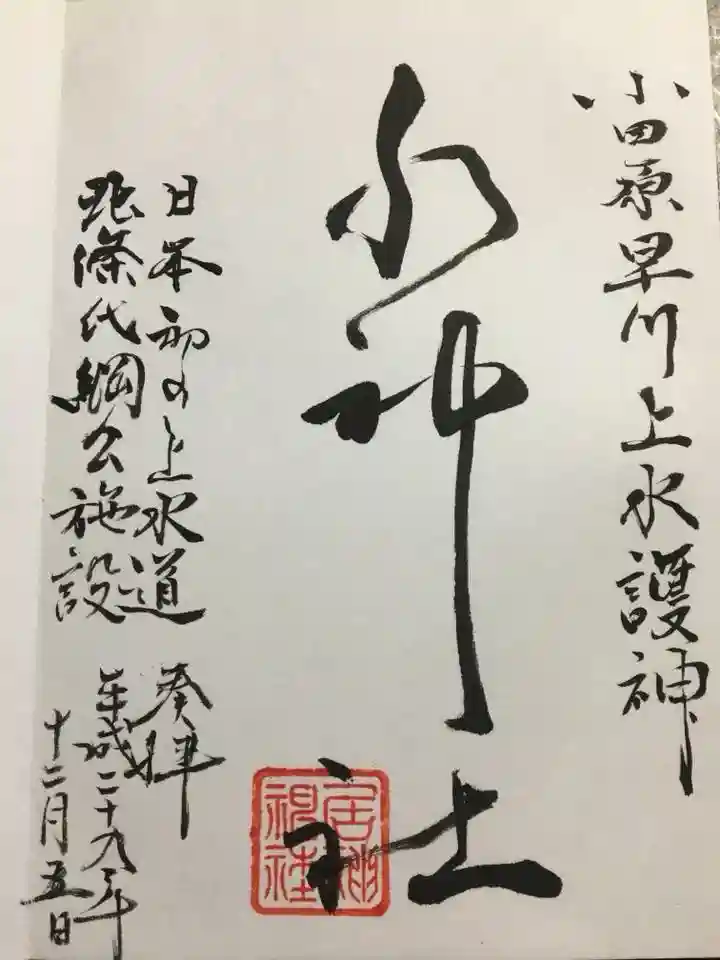 小田原早川上水護神
水神社
居神神社
日本初の上水道
北條氏綱公施設
奉拝
平成二十九年
十二月五日